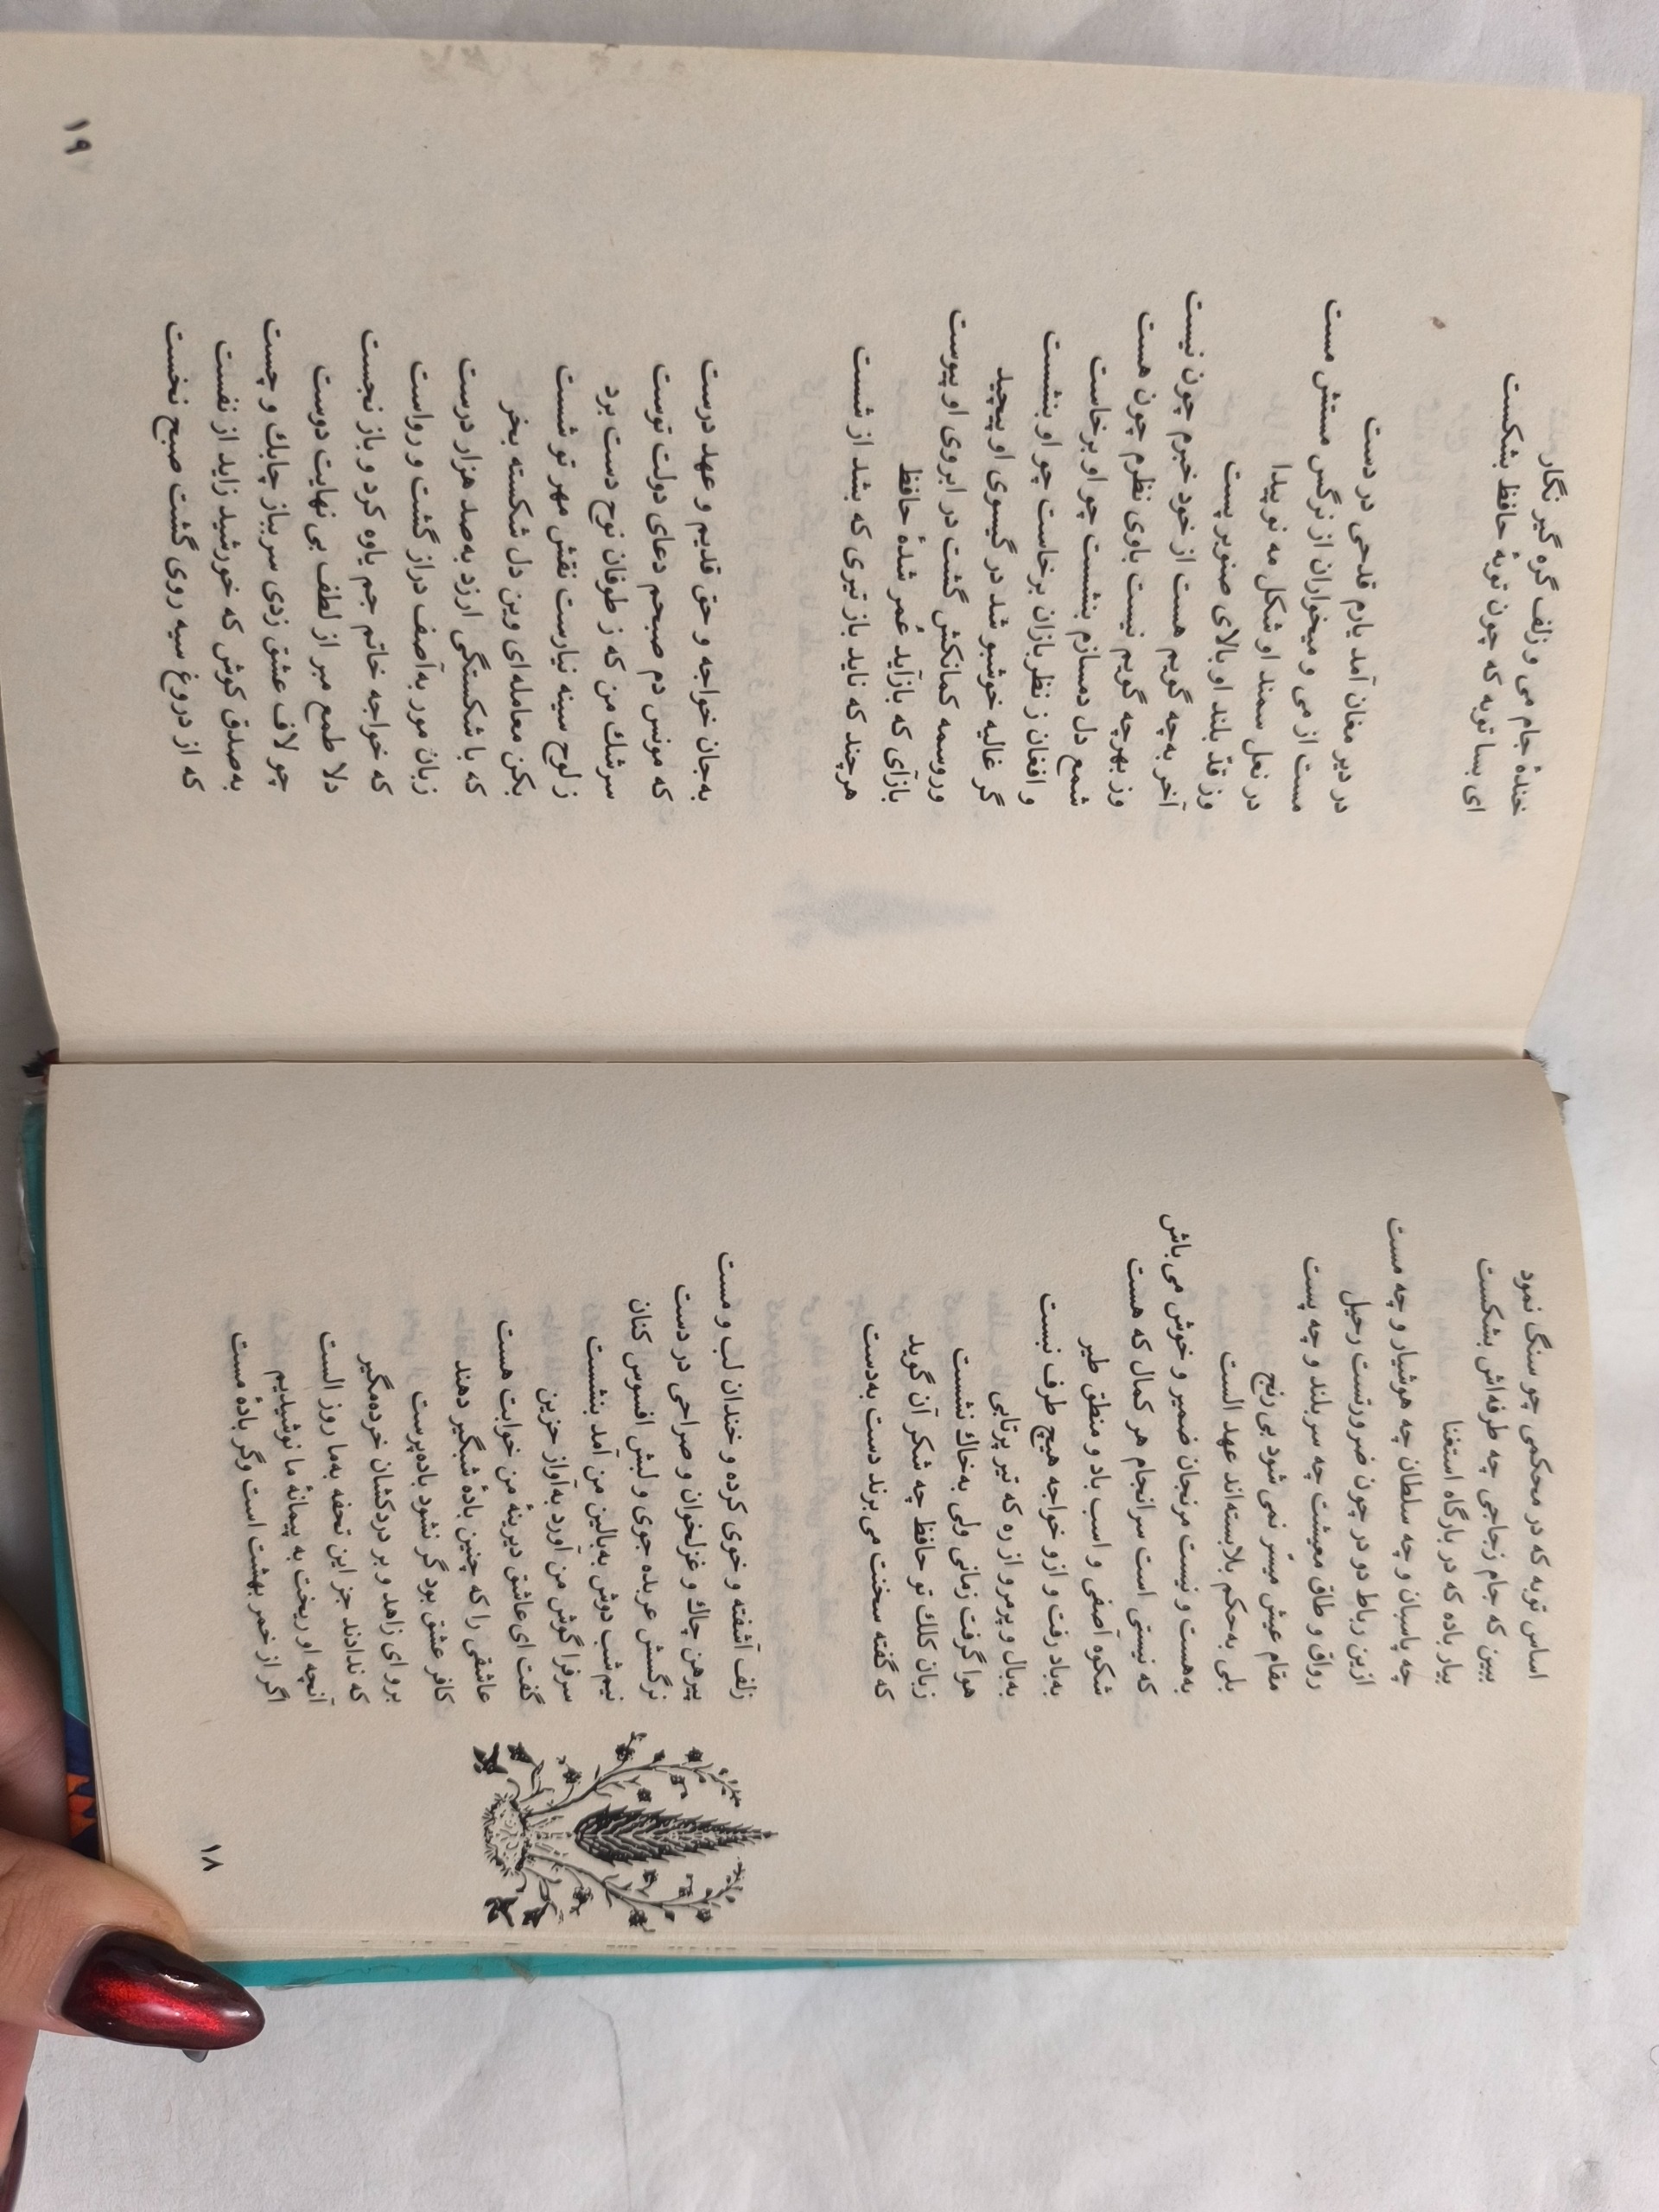 اساس توبه که در محکمی چو سنگ نمود
ببین که جام زجاجی چه طرفه‌اش بشکست
بیار باده که در بارگاه استغنا
چه پاسبان و چه سلطان چه هوشیار و چه مست
ازین رباط دو در چون ضرورتست رحیل
رواق و طاق معیشت چه سربلند و چه پست
مقام عیش میسّر نمی‌شود بی‌رنج
بلی به‌حکم بلا بسته‌اند عهد الست
به‌هست و نیست مرنجان ضمیر و خوش می‌باش
که نیستی است سرانجام هر کمال که هست
شکوه آصفی و اسب باد و منطق طیر
به‌باد رفت و ازو خواجه هیچ طرف نبست
به‌بال و پر مرو از ره که تیر پرتابی
هوا گرفت زمانی ولی به‌خاك نشست
زبان کلك تو حافظ چه شکر آن گوید
که گفته سخنت می‌برند دست به‌دست
زلف آشفته و خوی کرده و خندان لب و مست
پیرهن چاك و غزلخوان و صراحی در دست
نرگسش عربده جوی و لبش افسوس کنان
نیم‌شب دوش به‌بالین من آمد بنشست
سر فرا گوش من آورد به‌آواز حزین
گفت ای عاشق دیرینهٔ من خوابت هست
عاشقی را که چنین بادهٔ شبگیر دهند
کافر عشق بود گر نشود باده‌پرست
برو ای زاهد و بر دردکشان خرده‌مگیر
که ندادند جز این تحفه به‌ما روز الست
آنچه او ریخت به پیمانهٔ ما نوشیدیم
اگر از خمر بهشت است وگر بادهٔ مست
۱۸
خندهٔ جام می و زلف گره گیر نگار
ای بسا توبه که چون توبهٔ حافظ بشکست
در دیر مغان آمد یارم قدحی در دست
مست از می و میخواران از نرگس مستش مست
در نعل سمند او شکل مه نو پیدا
وز قدّ بلند او بالای صنوبر پست
آخر به‌چه گویم هست از خود خبرم چون نیست
وز بهر چه گویم نیست باوی نظرم چون هست
شمع دل دمسازم بنشست چو او برخاست
و افغان ز نظربازان برخاست چو او بنشست
گر غالیه خوشبو شد در گیسوی او پیچید
ور وسمه کمانکش گشت در ابروی او پیوست
بازآی که بازآید عُمر شدهٔ حافظ
هرچند که ناید باز تیری که بشد از شست
به‌جان خواجه و حق قدیم و عهد درست
که مونس دم صبحم دعای دولت توست
سرشك من که ز طوفان نوح دست برد
ز لوح سینه نیارست نقش مهر تو شست
بکن معامله‌ای وین دل شکسته بخر
که با شکستگی ارزد به‌صد هزار درست
زبان مور به‌آصف دراز گشت و رواست
که خواجه خاتم جم یاوه کرد و باز نجست
دلا طمع مبر از لطف بی نهایت دوست
چو لاف عشق زدی سر بباز چابك و چست
به‌صدق کوش که خورشید زاید از نفست
که از دروغ سیه روی گشت صبح نخست
۱۹